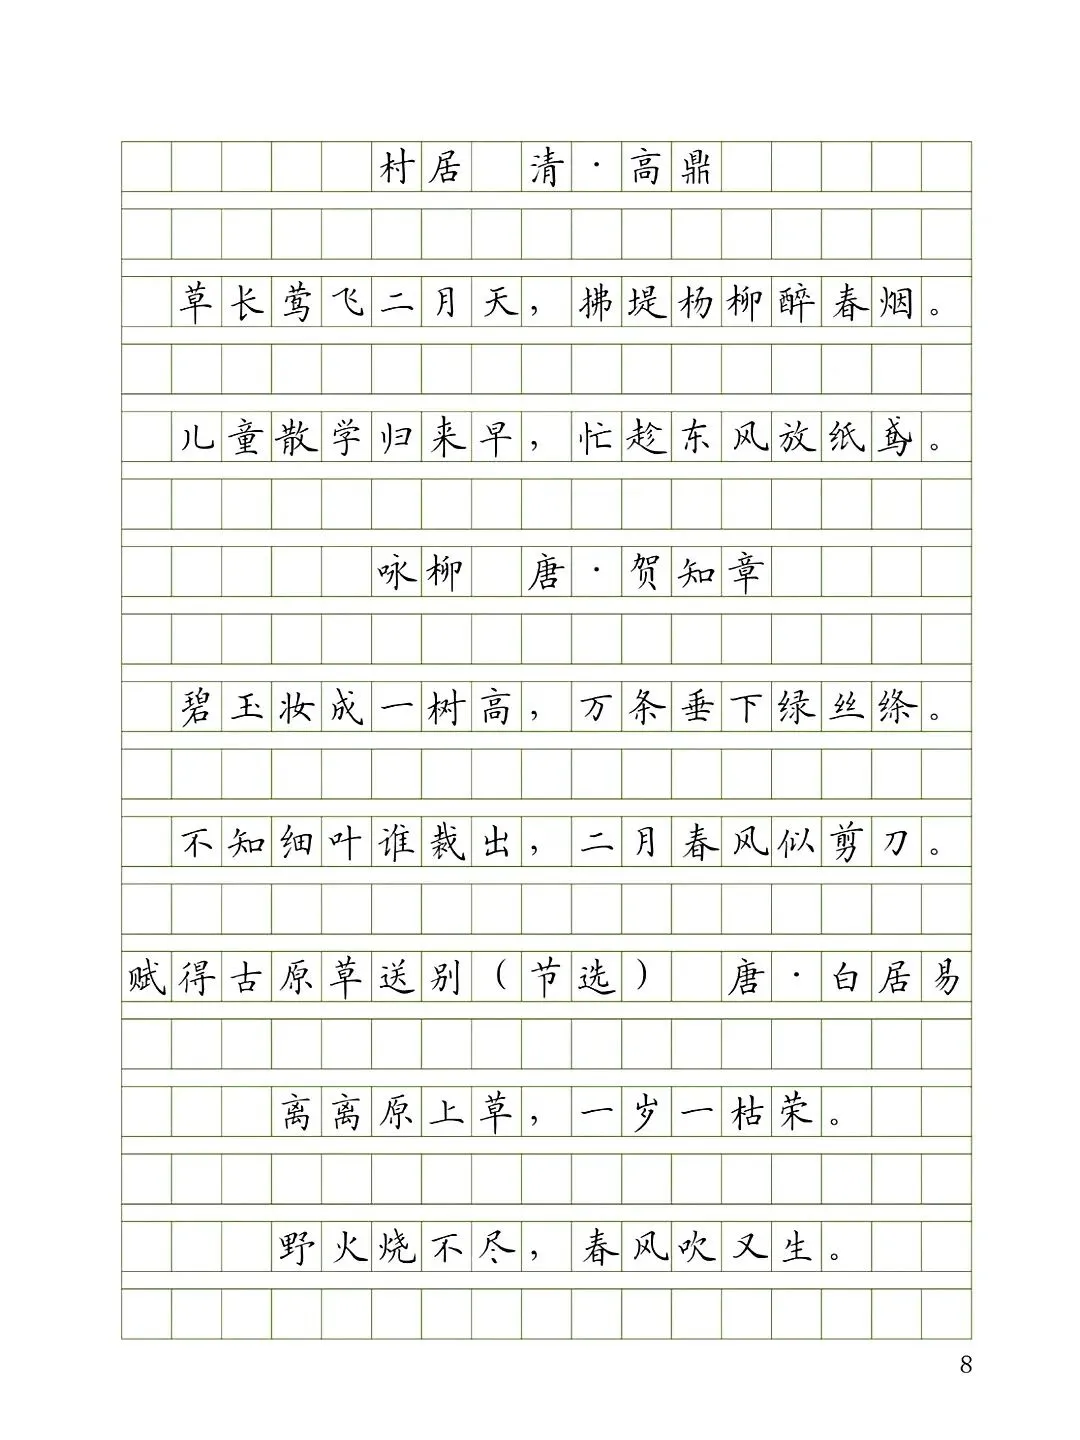 村居 清·高鼎
草长莺飞二月天，拂堤杨柳醉春烟。
儿童散学归来早，忙趁东风放纸鸢。
咏柳 唐·贺知章
碧玉妆成一树高，万条垂下绿丝绦。
不知细叶谁裁出，二月春风似剪刀。
赋得古原草送别（节选） 唐·白居易
离离原上草，一岁一枯荣。
野火烧不尽，春风吹又生。
8